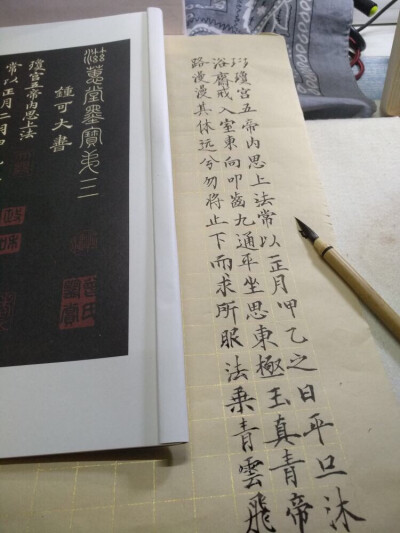 瓊宮五帝内思上法常以正月甲乙之日平旦沐
浴齋戒入室東向叩齒九通平坐思東極玉真青帝
路漫漫其休远兮勿将止下而求所服法乘青雲飛
滋蕙堂墨寶弟三
鍾可大書
瓊宮五帝内思上法
常以正月二月甲